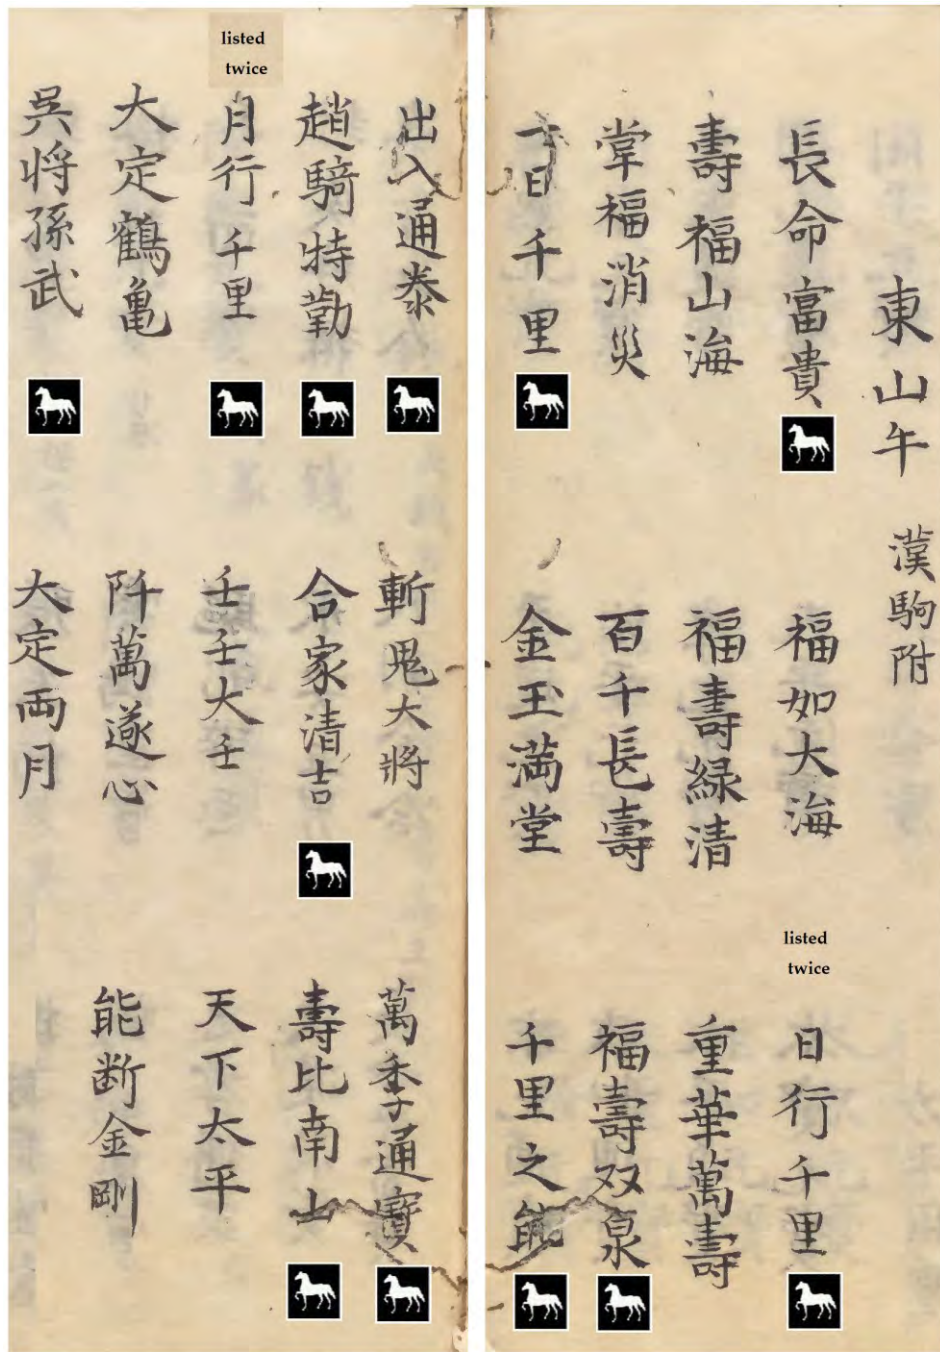 東山午 漢駒附
長命富貴
福如大海
listed
twice
日行千里
壽福山海
福壽緑清
重華萬壽
常福消災
百千長壽
福壽双泉
一日千里
金玉満堂
千里之能
出入通泰
斬鬼大將
萬季通寶
趙騎特勤
合家清吉
壽比南山
listed
twice
月行千里
壬壬大壬
天下太平
大定鶴亀
阡萬遂心
能断金剛
吳将孫武
大定両月